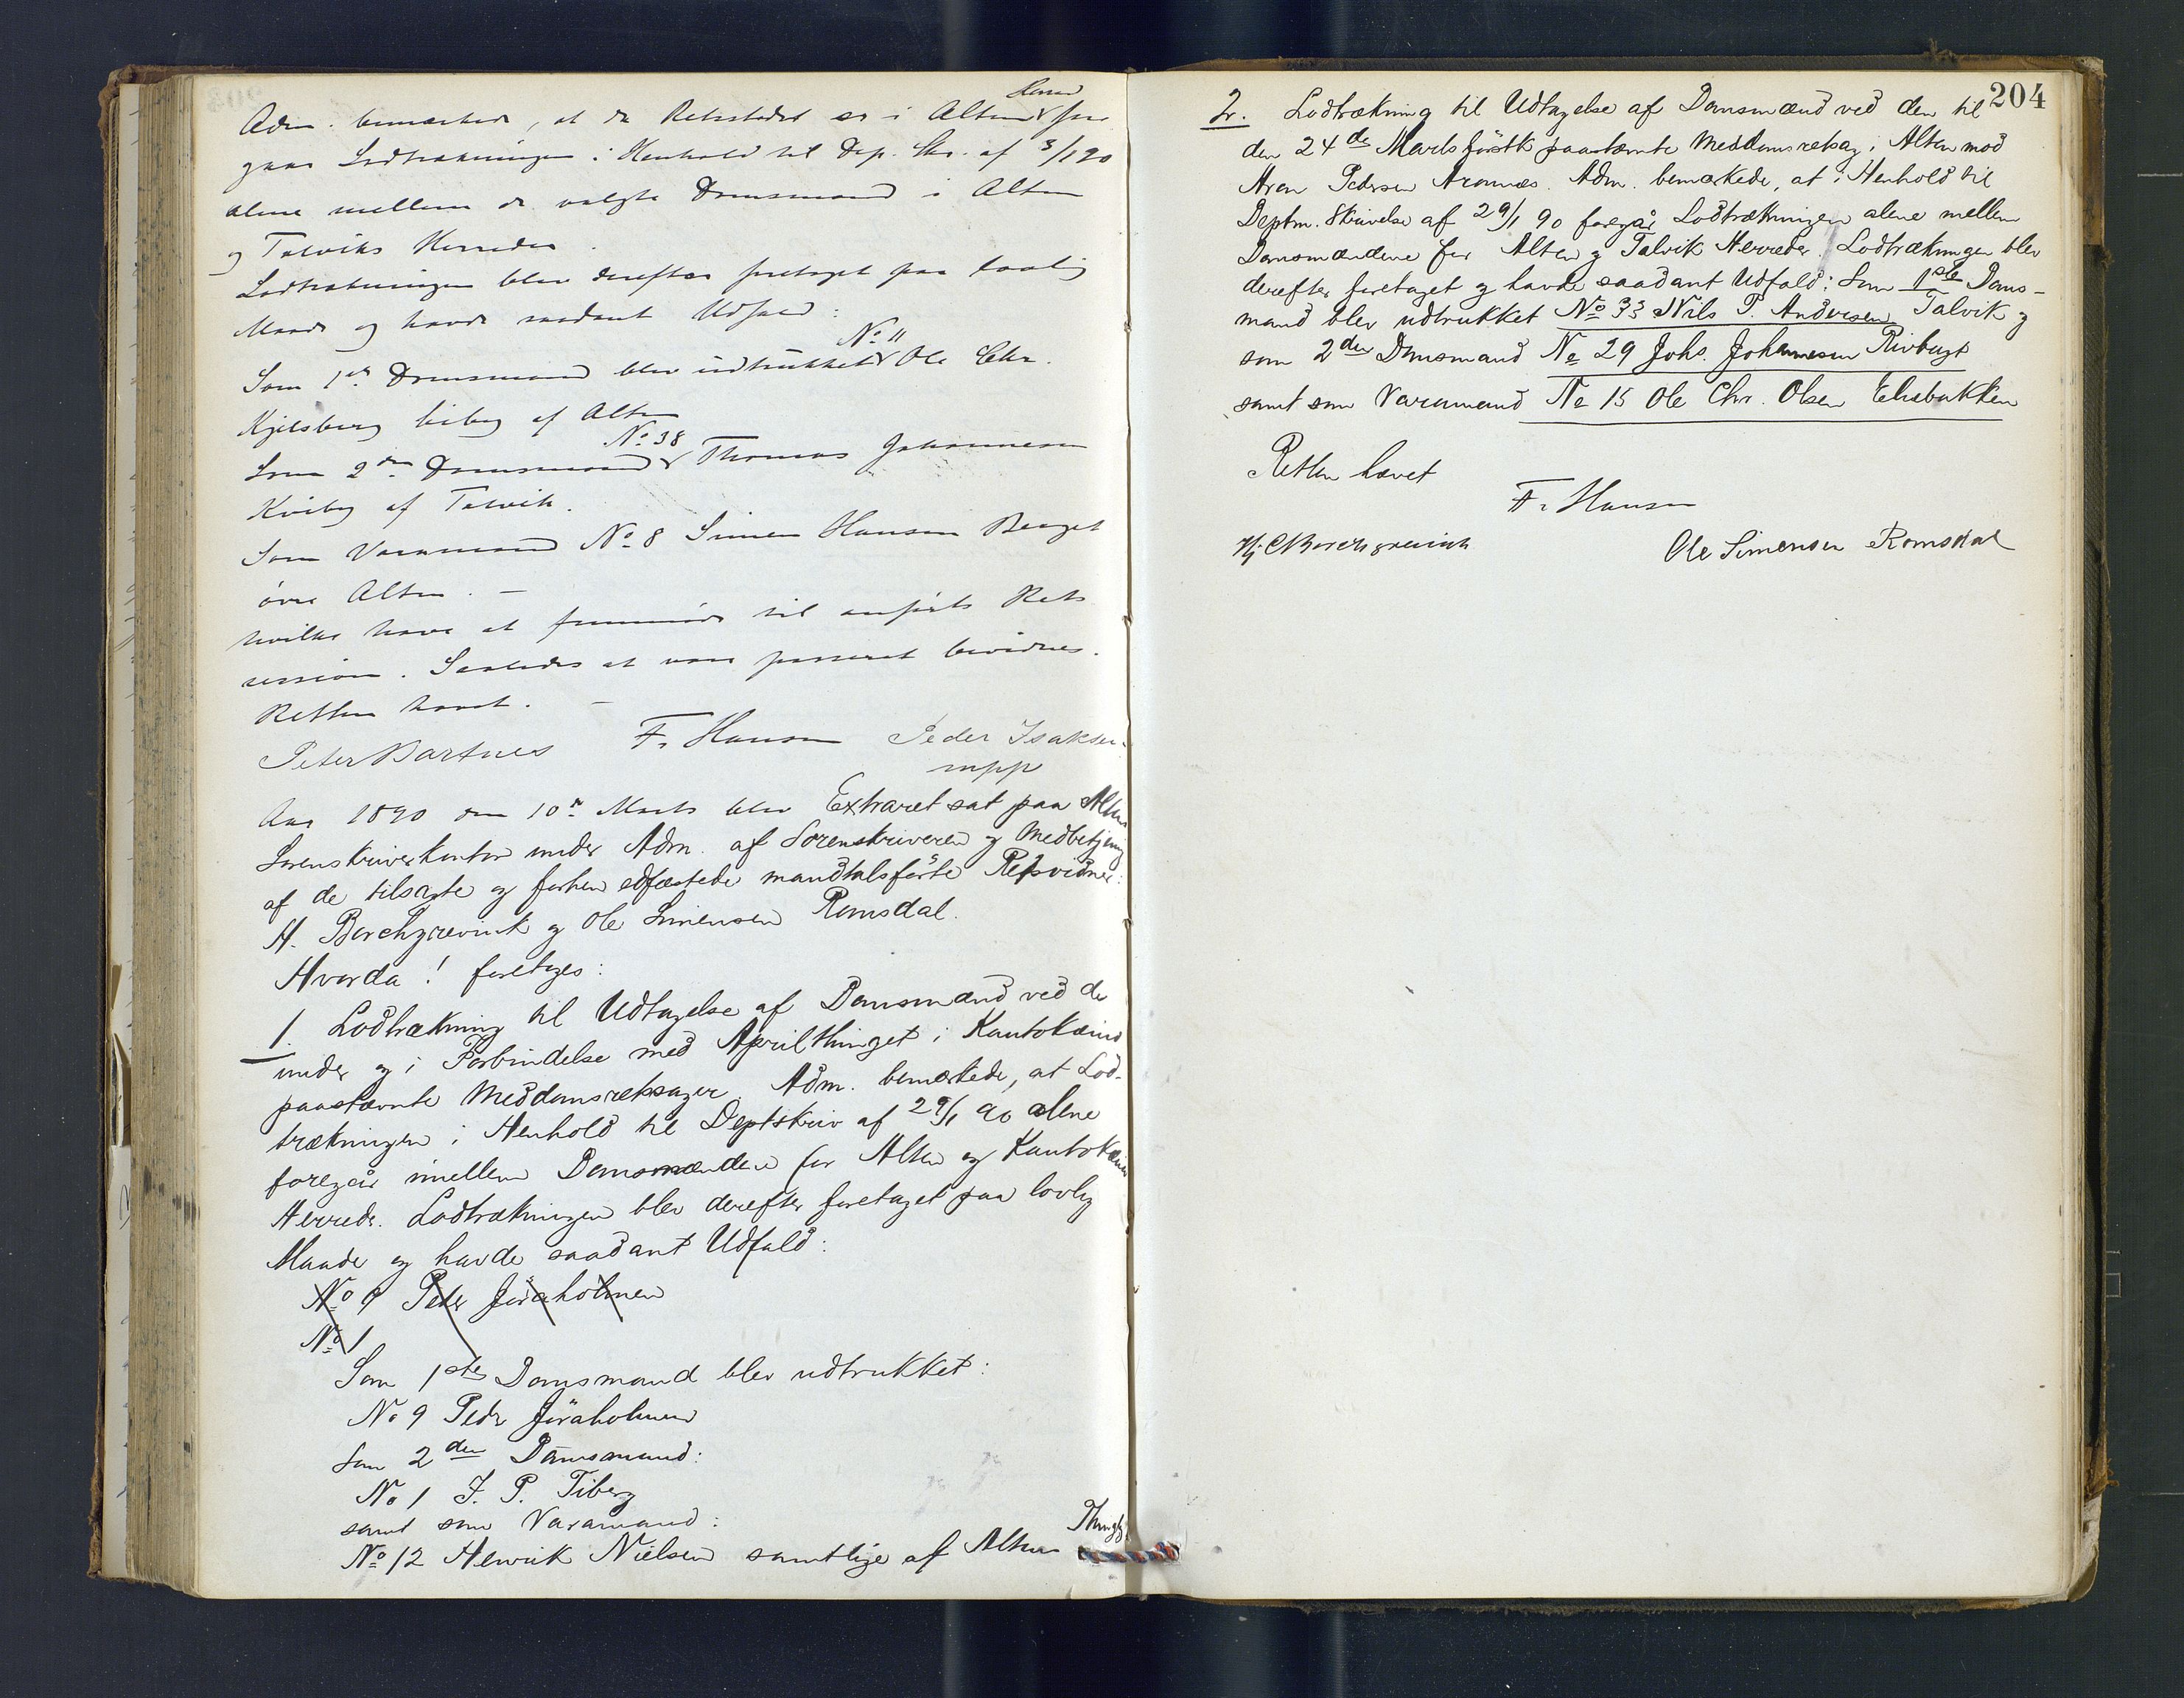 Adm. bemærkede, at da Retsstedet er i Alten Herred fore
gaar Lodtrækningen i Henhold til Dep. Skr. af 3/1 90
alene mellem de valgte Domsmænd i Alten
og Talviks Herreder.
Lodtrækningen blev derefter foretaget paa lovlig
Maade og havde saadant Udfald:
Som 1ste Domsmand blev udtrukket No 11 Ole Chr.
Kjelsberg Elvebakken af Alten
Som 2den Domsmand No 38 Thomas Johannesen
Kviby af Talvik.
Som Varamand No 8 Simen Hansen
øvre Alten. –
hvilke have at fremmøde til anførte Rets
session. Saaledes at være passeret bevidnes.
Retten hævet. –
Peter Bartnes F. Hansen Peder Isaksen
mpp
Aar 1890 den 10de Marts blev Extraret sat paa Altens
Sorenskriverkontor under Adm. af Sorenskriveren og Medbetjening
af de tilsagte og forhen edfæstede mandtalsførte Retsvidner:
H. Borchgrevink og Ole Simensen Romsdal.
Hvorda! foretoges:
1. Lodtrækning til Udtagelse af Domsmænd ved de
under og i Forbindelse med Aprilthinget i Kautokeino
paastævnte Meddomsretssager. Adm. bemærkede, at Lod-
trækningen i Henhold til Deptskriv af 29/1 90 alene
foregår imellem Domsmændene for Alten og Kautokeino
Herreder. Lodtrækningen blev derefter foretaget paa lovlig
Maade og havde saadant Udfald:
No 9 Peder Jöraholmen
No 1
Som 1ste Domsmand blev udtrukket:
No 9 Peder Jöraholmen
Som 2den Domsmand:
No 1 J. P. Tiberg
samt som Varamand:
No 12 Henrik Nielsen samtlige af Alten Thinglg.
204
2. Lodtrækning til Udtagelse af Domsmænd ved den til
den 24de Marts førstk paastævnte Meddomsretsag i Alten mod
Aron Pedersen Aronnæs. Adm. bemærkede, at i Henhold til
Deptm. Skrivelse af 29/1 90 foregår Lodtrækningen alene mellem
Domsmændene for Alten og Talvik Herreder. Lodtrækningen blev
derefter foretaget og havde saadant Udfald: Som 1ste Doms-
mand blev udtrukket No 33 Nils P. Andersen Talvik og
som 2den Domsmand No 29 Johs. Johannesen Rivbugt
samt som Varamand No 15 Ole Chr. Olsen Elvebakken
Retten hævet
F. Hansen
Hj. C Borchgrevink Ole Simensen Romsdal